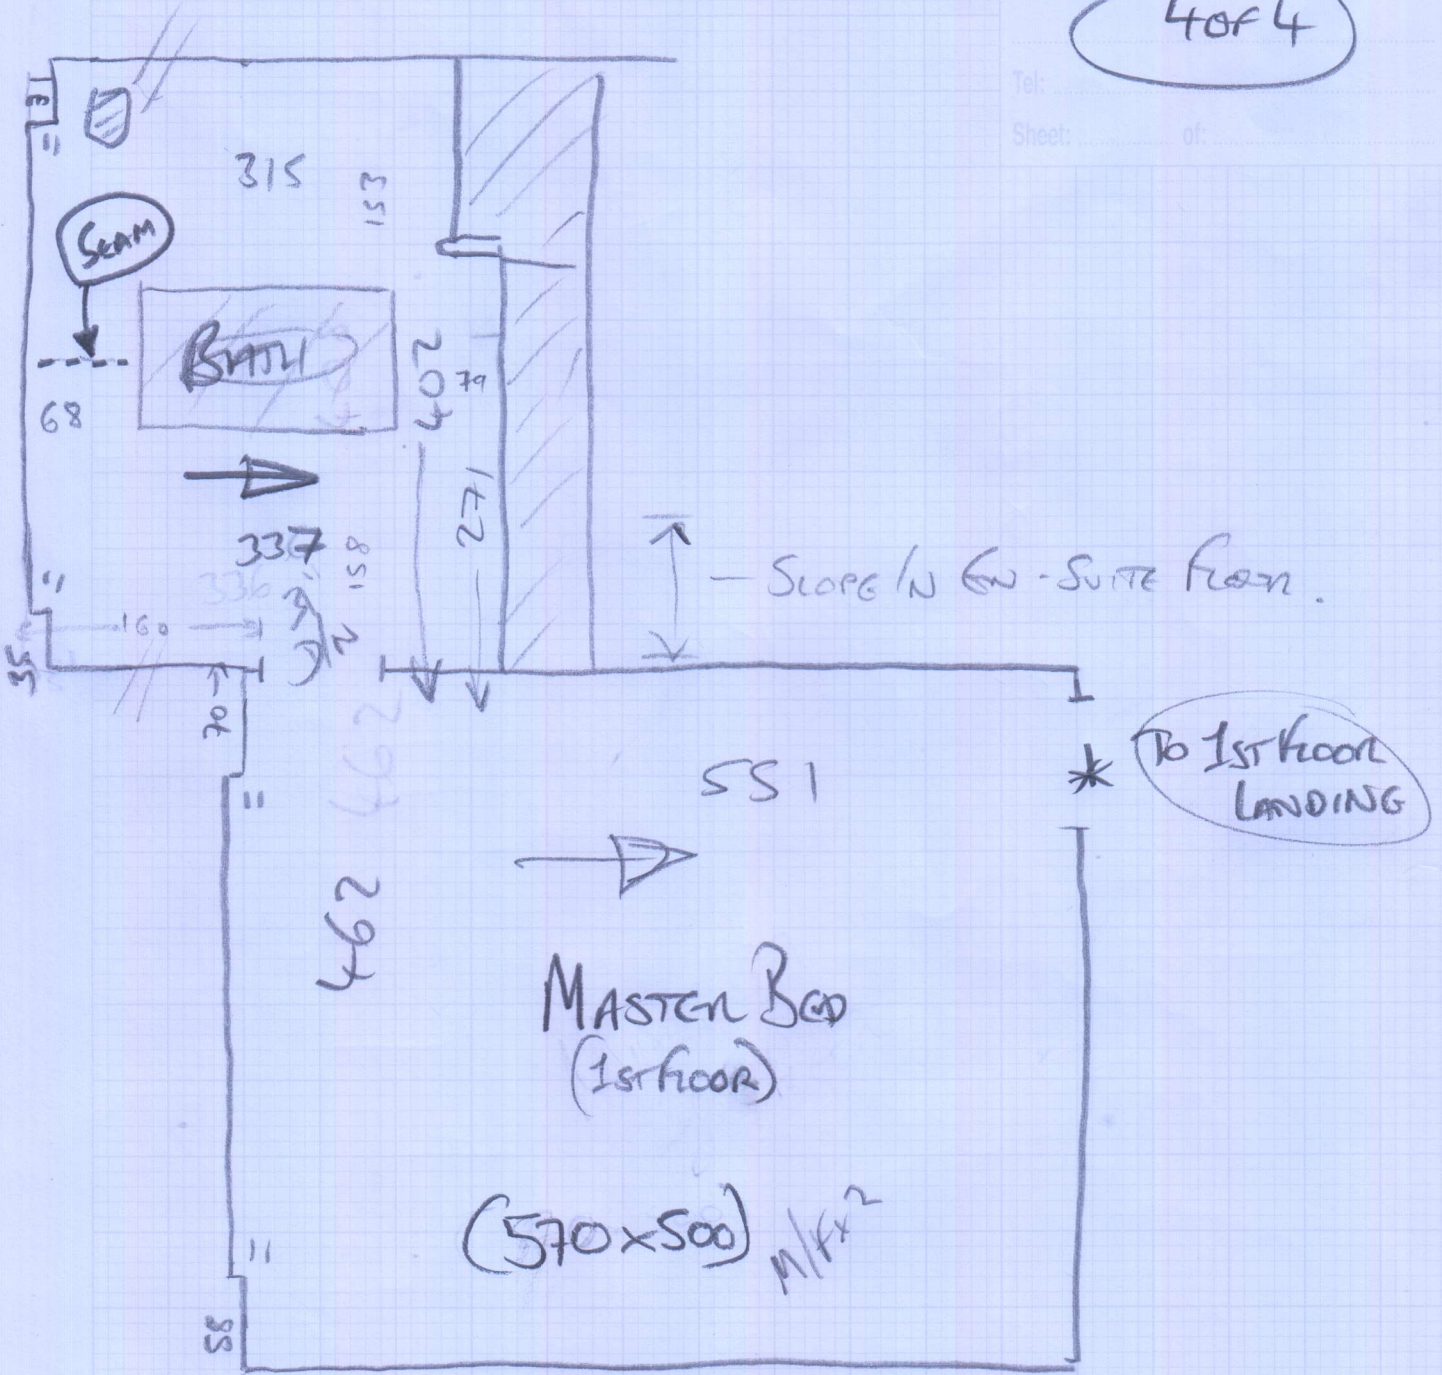 4 OF 4
Tel:
Sheet: of:
31
11
315
153
SEAM
BATH
402
79
68
271
337
336
158
11
160
12
35
SLOPE IN EN-SUITE FLOOR.
70
462
551
TO 1ST FLOOR
LANDING
11
462
MASTER BED
(1ST FLOOR)
(570x500) M/Fx²
11
58